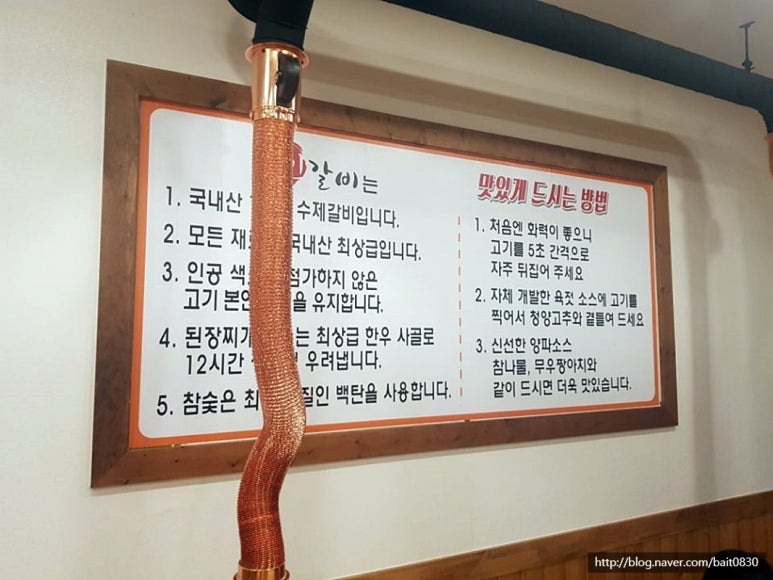 갈비는
1. 국내산 수제갈비입니다.
2. 모든 국내산 최상급입니다.
3. 인공 첨가하지 않은
고기 유지합니다.
4. 최상급 한우 사골로
12시간 우려냅니다.
5. 참숯은 백탄을 사용합니다.
맛있게 드시는 방법
1. 처음엔 화력이 좋으니
고기를 5초 간격으로
자주 뒤집어 주세요
2. 자체 개발한 육젓 소스에 고기를
찍어서 청양고추와 곁들여 드세요
3. 신선한 양파소스
참나물, 무우짱아치와
같이 드시면 더욱 맛있습니다.
http://blog.naver.com/bait0830